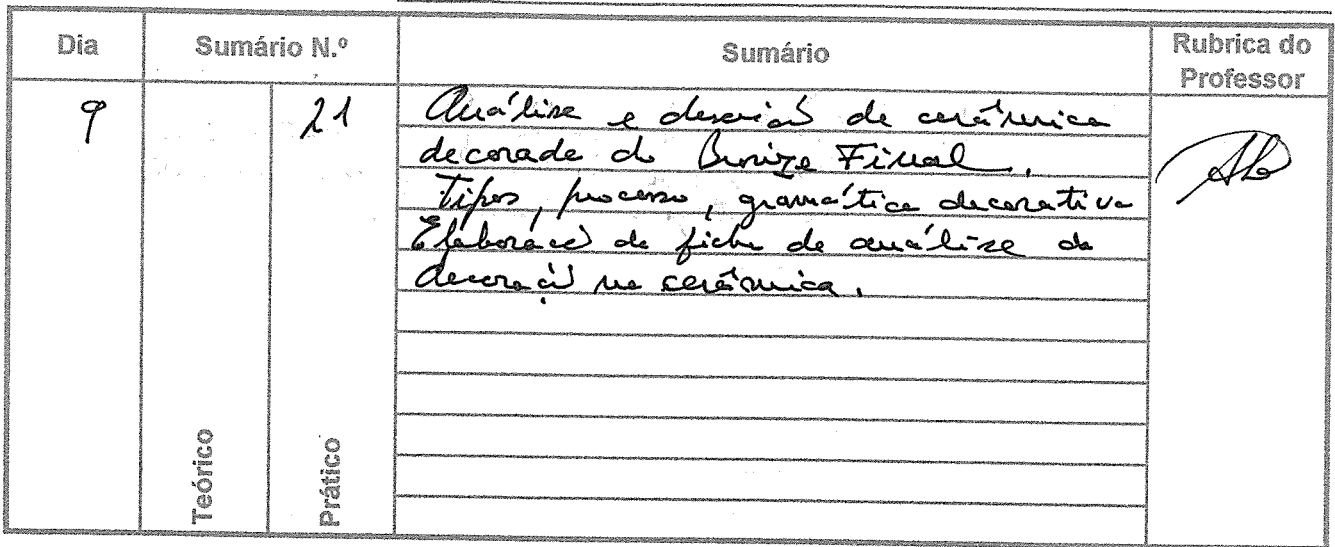 Dia Sumário N.º Sumário Rubrica do Professor
9 21 Análise e descrição de cerâmica
decorada do Bronze Final.
Tipos, processo, gramática decorativa
Elaboração da ficha de análise da
decoração na cerâmica.
Teórico
Prático